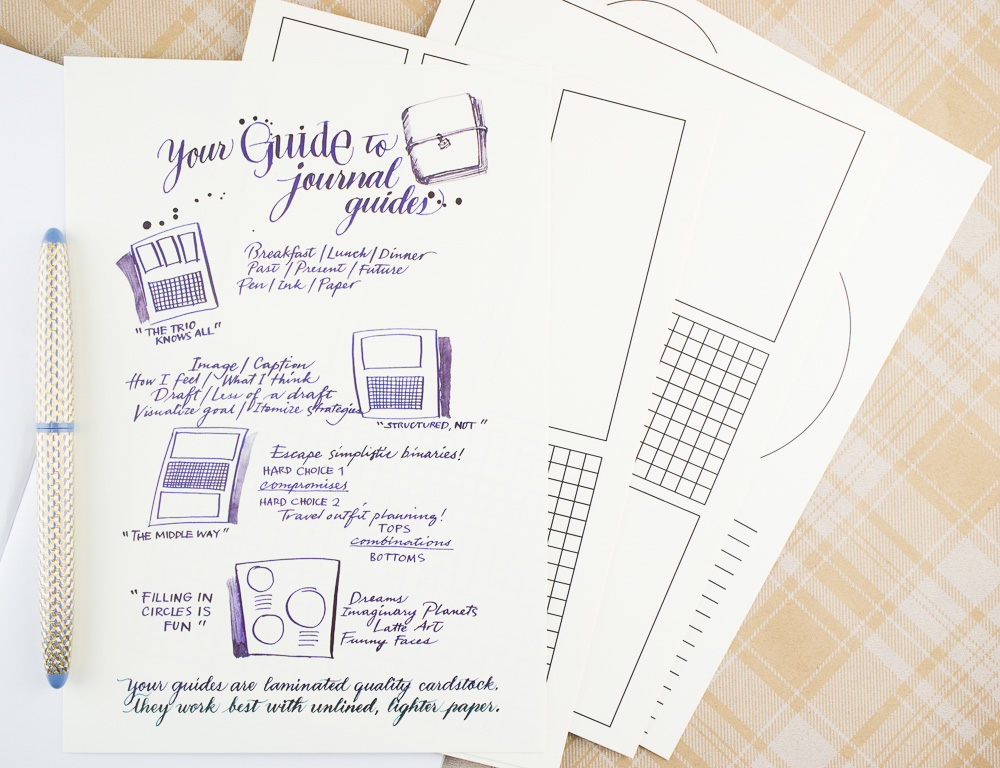 Your Guide to
journal
guides
Breakfast / Lunch / Dinner
Past / Present / Future
Pen / Ink / Paper
"THE TRIO
KNOWS ALL"
Image / Caption
How I feel / What I think
Draft / Less of a draft
Visualize goal / Itemize strategies
"STRUCTURED, NOT"
Escape simplistic binaries!
HARD CHOICE 1
compromises
HARD CHOICE 2
Travel outfit planning!
TOPS
combinations
BOTTOMS
"THE MIDDLE WAY"
"FILLING IN
CIRCLES IS
FUN"
Dreams
Imaginary Planets
Latte Art
Funny Faces
Your guides are laminated quality cardstock.
They work best with unlined, lighter paper.